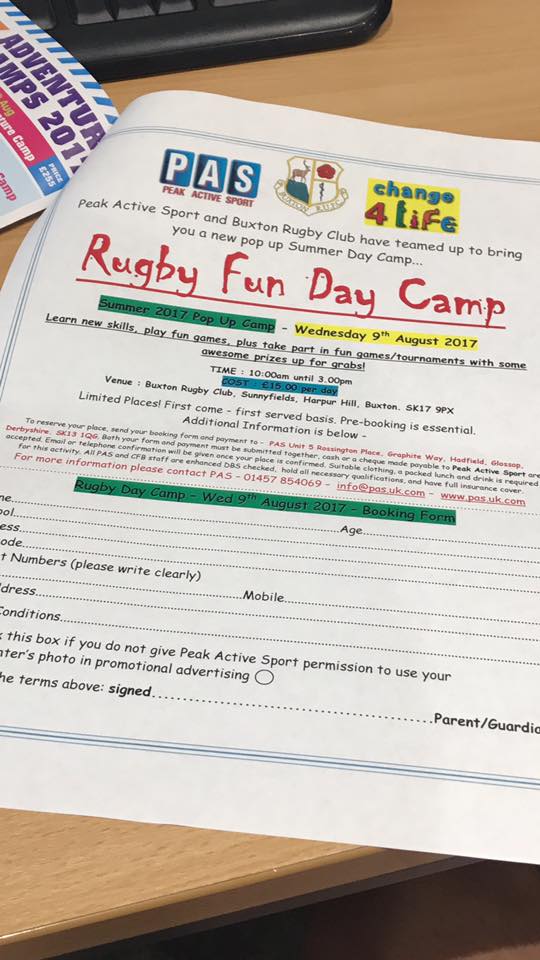 ADVENTURE
CAMPS 2017
Aug
ture Camp
PRICE
£255
Camp
PAS
PEAK ACTIVE SPORT
BUXTON R.U.F.C.
change
4 LiFe
Peak Active Sport and Buxton Rugby Club have teamed up to bring
you a new pop up Summer Day Camp...
Rugby Fun Day Camp
Summer 2017 Pop Up Camp - Wednesday 9th August 2017
Learn new skills, play fun games, plus take part in fun games/tournaments with some
awesome prizes up for grabs!
TIME : 10:00am until 3.00pm
COST : £15.00 per day
Venue : Buxton Rugby Club, Sunnyfields, Harpur Hill, Buxton. SK17 9PX
Limited Places! First come - first served basis. Pre-booking is essential.
Additional Information is below -
To reserve your place, send your booking form and payment to - PAS Unit 5 Rossington Place, Graphite Way, Hadfield, Glossop,
Derbyshire. SK13 1QG. Both your form and payment must be submitted together, cash or a cheque made payable to Peak Active Sport are
accepted. Email or telephone confirmation will be given once your place is confirmed. Suitable clothing, a packed lunch and drink is required
for this activity. All PAS and CFB staff are enhanced DBS checked, hold all necessary qualifications, and have full insurance cover.
For more information please contact PAS - 01457 854069 - info@pas.uk.com - www.pas.uk.com
Rugby Day Camp - Wed 9th August 2017 - Booking Form
me
ool Age
ess
ode
t Numbers (please write clearly)
dress Mobile
Conditions
k this box if you do not give Peak Active Sport permission to use your
nter's photo in promotional advertising
he terms above: signed Parent/Guardia